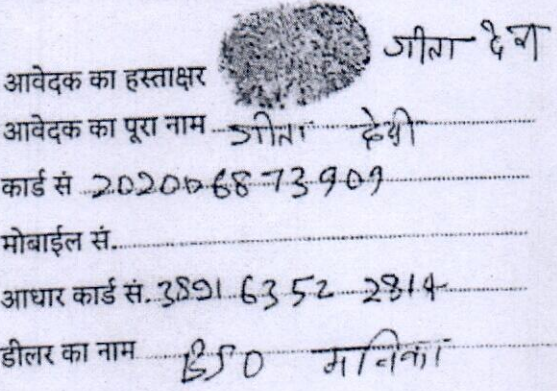 आवेदक का हस्ताक्षर गीता देवी
आवेदक का पूरा नाम गीता देवी
कार्ड सं 202006873909
मोबाईल सं.
आधार कार्ड सं. 3891 6352 2814
डीलर का नाम BSO मनिका